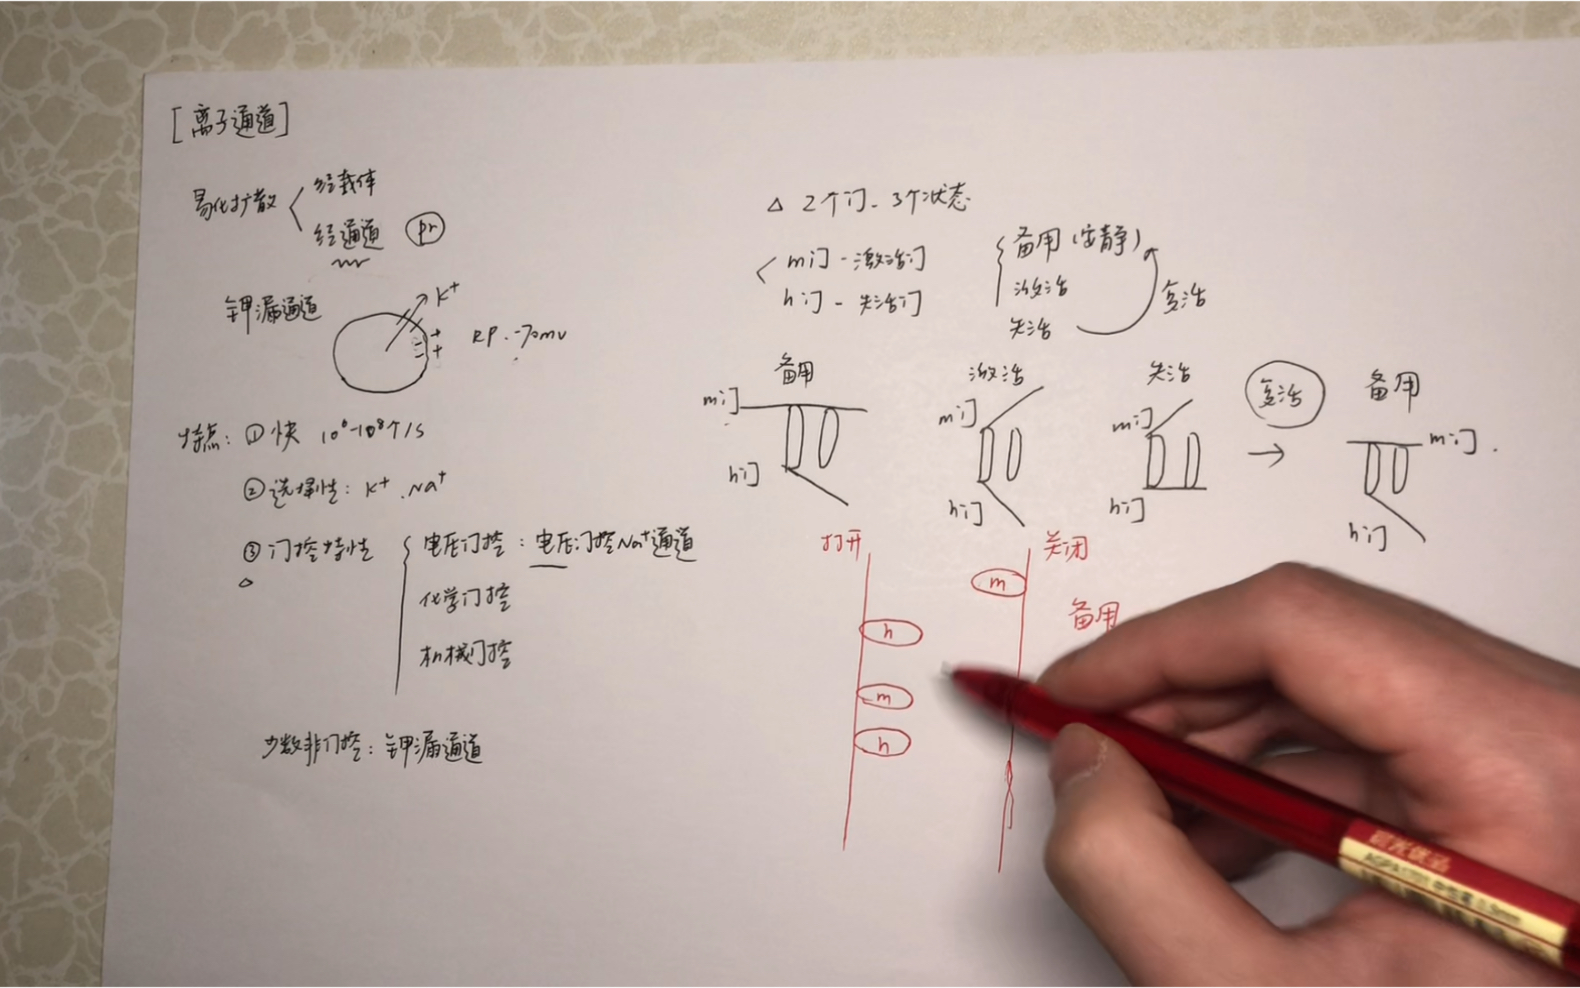 [离子通道]
易化扩散 经载体
经通道 pr
钾漏通道 K+
RP. -70mv
特点: ①快 10⁶-10⁸个/s
②选择性: K+ . Na+
③门控特性 电压门控: 电压门控Na+通道
化学门控
机械门控
少数非门控: 钾漏通道
△ 2个门. 3个状态
m门 - 激活门
h门 - 失活门
备用(安静)
激活
失活
复活
备用
m门
h门
激活
m门
h门
失活
m门
h门
复活
→
备用
m门.
h门
打开
h
m
h
关闭
m
备用